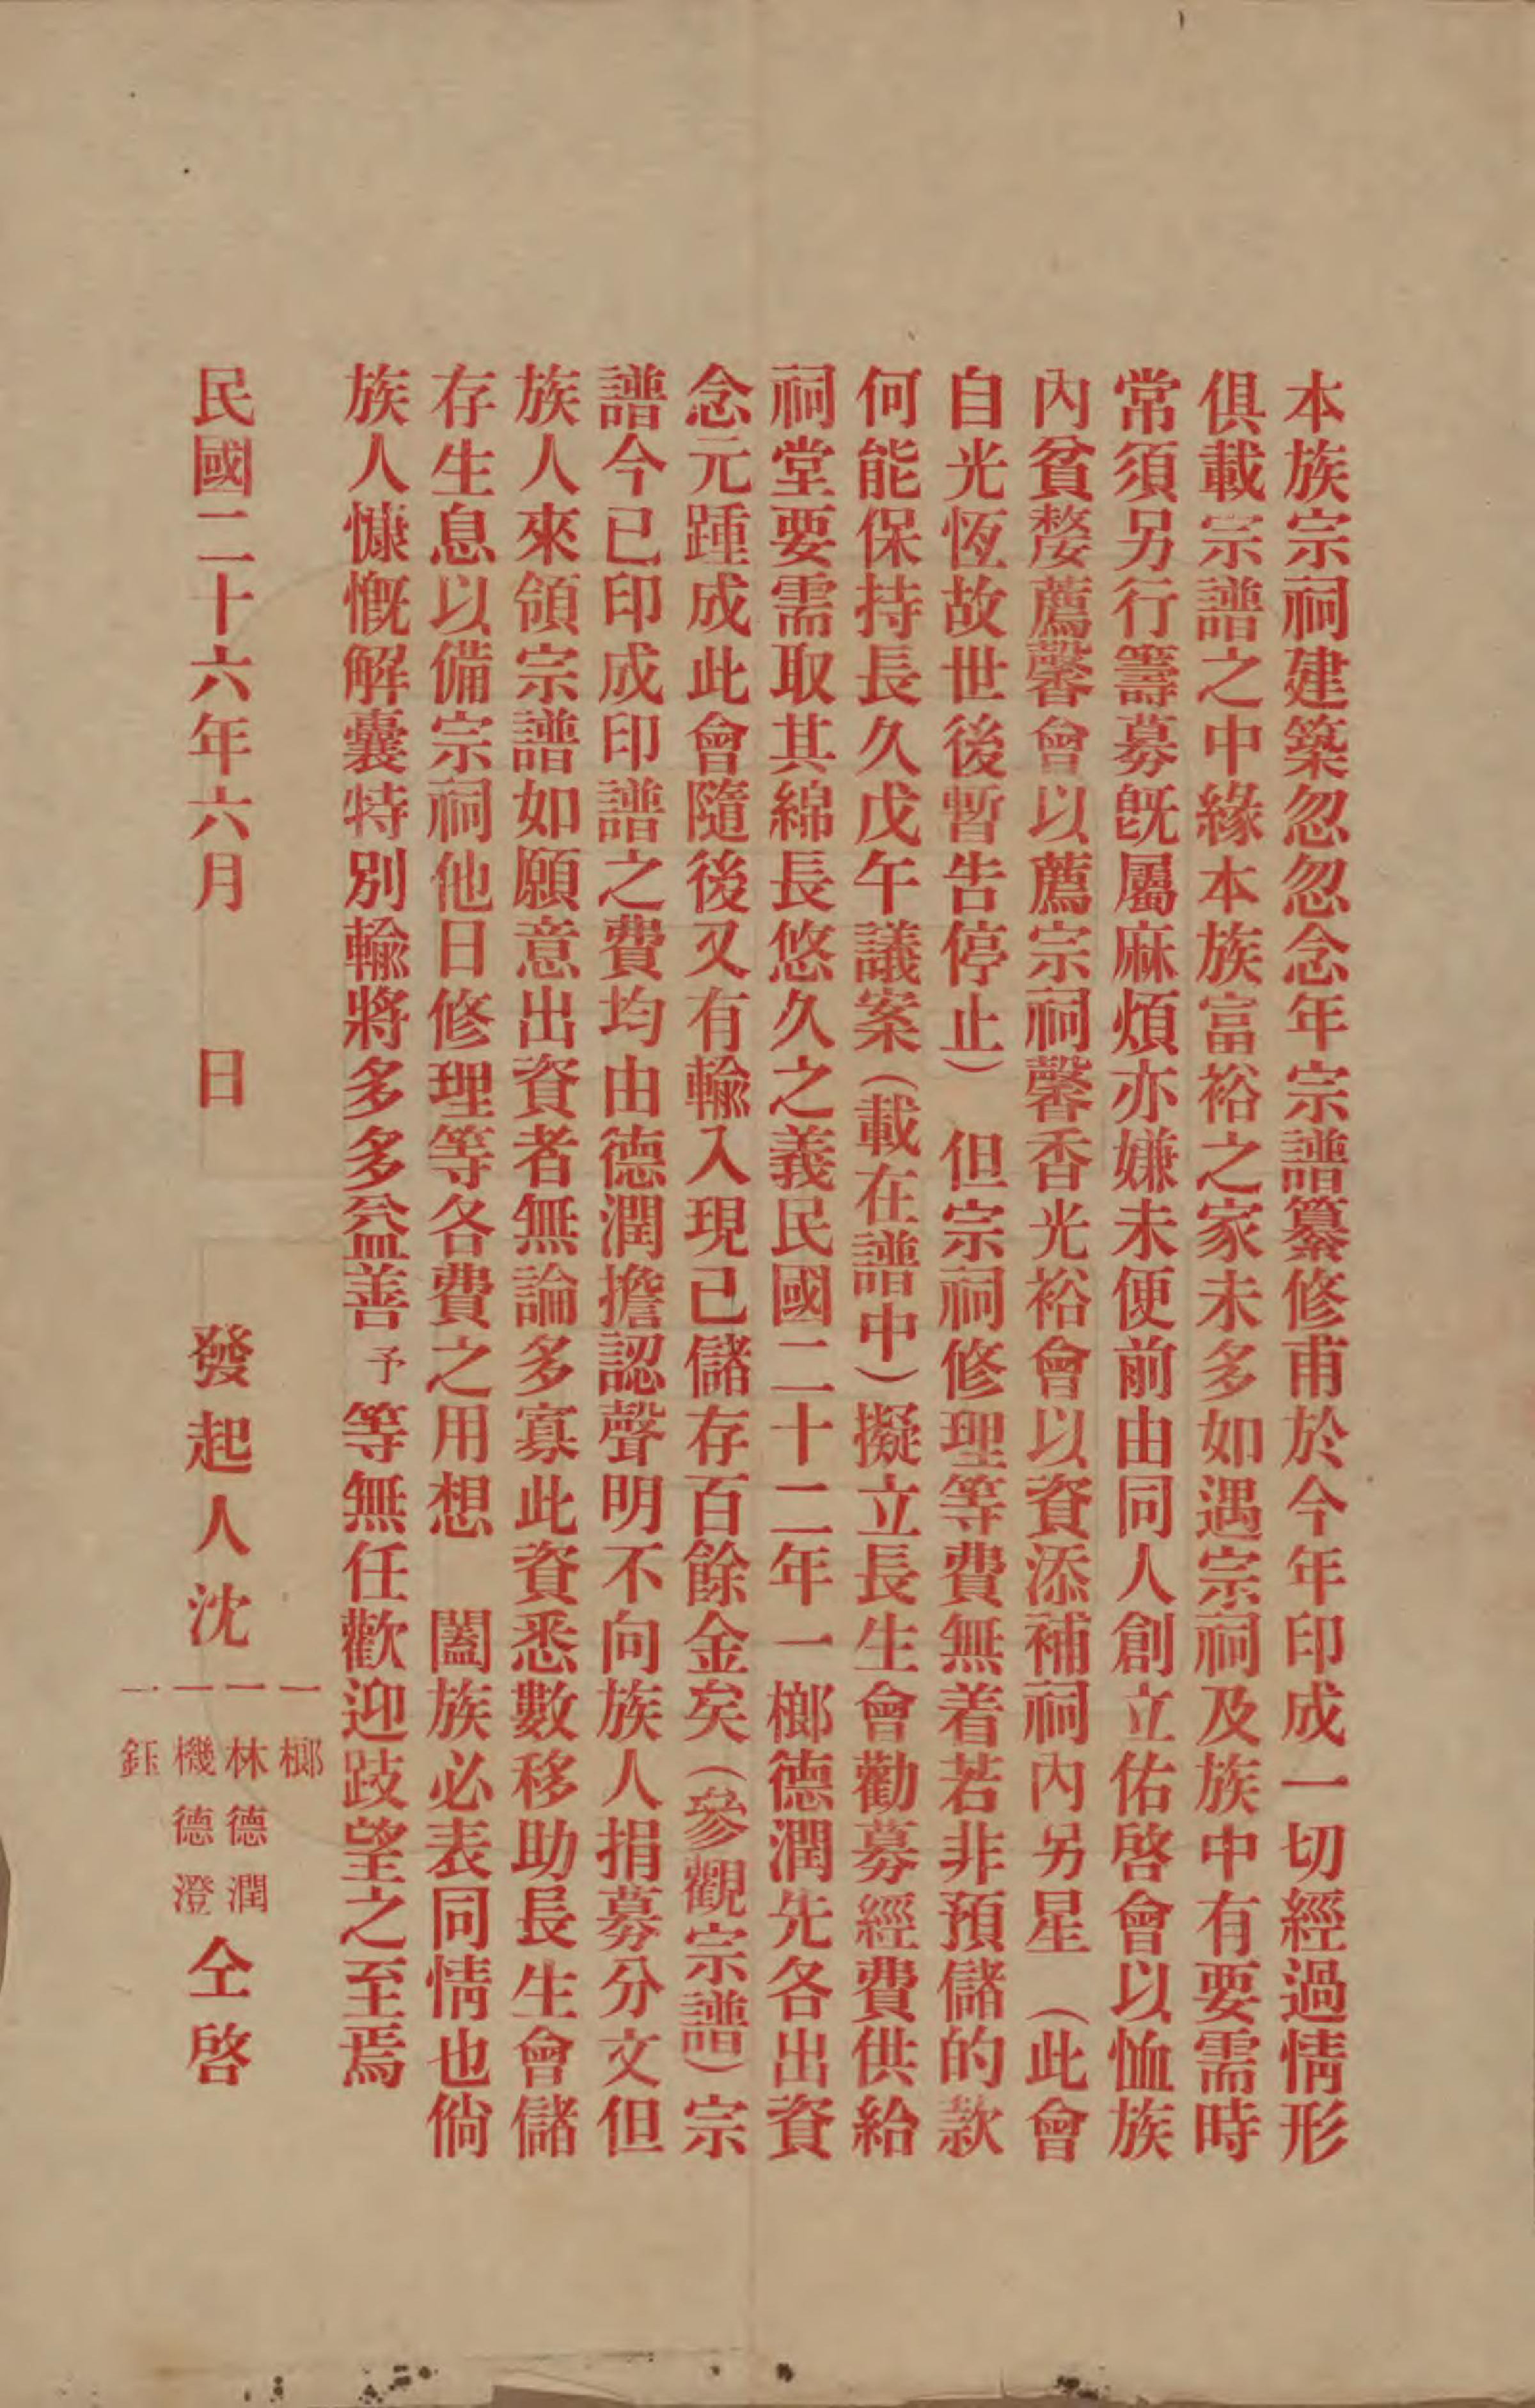 本族宗祠建築忽忽念年宗譜纂修甫於今年印成一切經過情形
俱載宗譜之中緣本族富裕之家未多如遇宗祠及族中有要需時
常須另行籌募旣屬麻煩亦嫌未便前由同人創立佑啓會以恤族
內貧嫠薦馨會以薦宗祠馨香光裕會以資添補祠內另星（此會
自光恆故世後暫告停止）　但宗祠修理等費無着若非預儲的款
何能保持長久戊午議案（載在譜中）擬立長生會勸募經費供給
祠堂要需取其綿長悠久之義民國二十二年一榔德潤先各出資
念元踵成此會隨後又有輸入現已儲存百餘金矣（參觀宗譜）宗
譜今已印成印譜之費均由德潤擔認聲明不向族人捐募分文但
族人來領宗譜如願意出資者無論多寡此資悉數移助長生會儲
存生息以備宗祠他日修理等各費之用想　闔族必表同情也倘
族人慷慨解囊特別輸將多多益善予等無任歡迎跂望之至焉
民國二十六年六月　　日　　　發起人沈
一榔
一林德潤
一機德澄
一鈺
仝啓